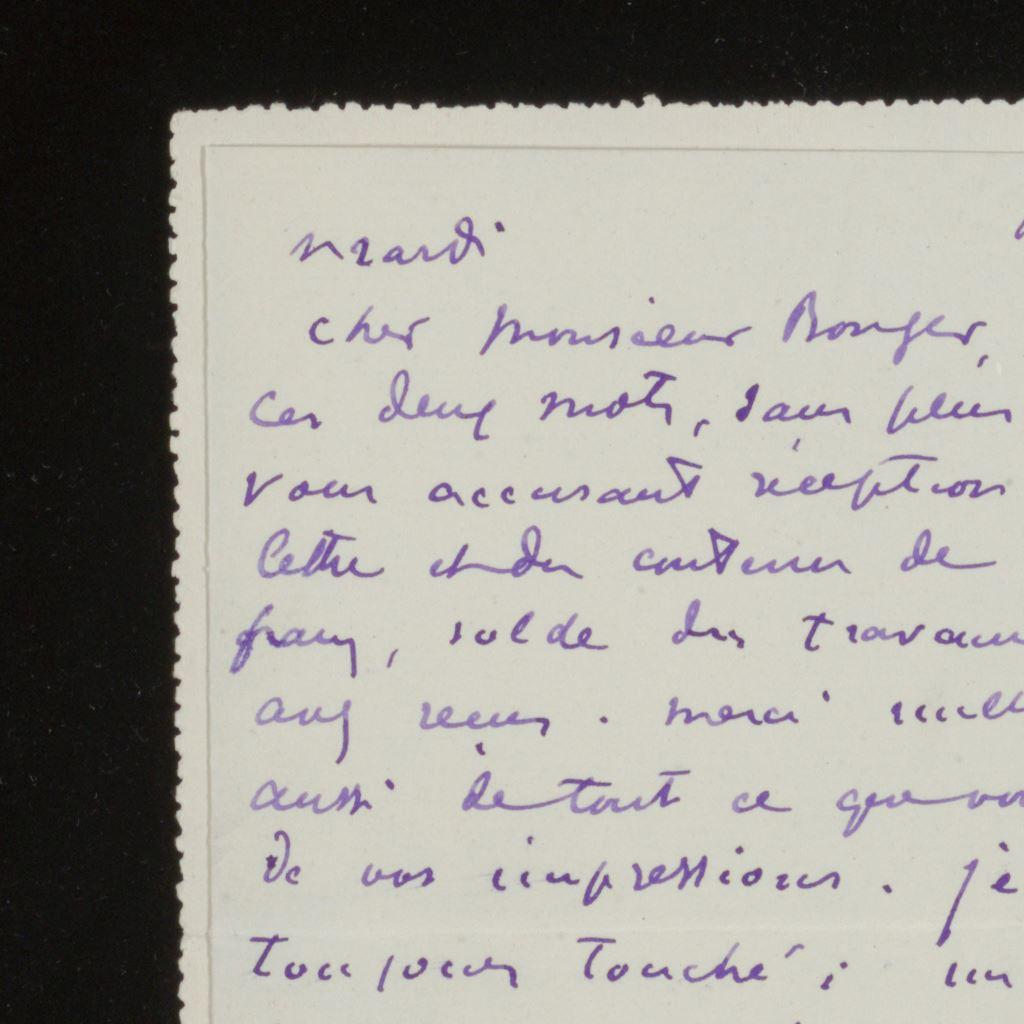 mardi
cher Monsieur Bonger,
Ces deux mots, sans plus
vous accusant réception
lettre et du contenu de
francs, solde des travaux
aux reçus. merci mille
aussi de tout ce que vou
de vos impressions. je
toujours touché; un